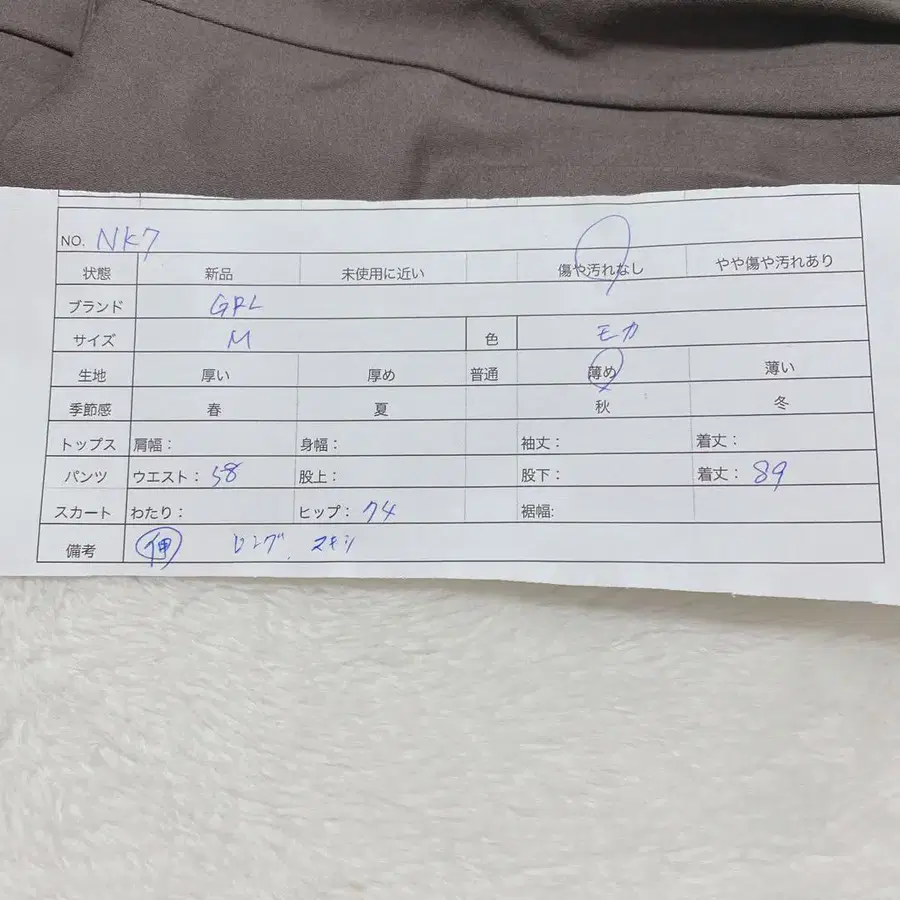 NO. NK7
状態 新品 未使用に近い 傷や汚れなし やや傷や汚れあり
ブランド GRL
サイズ M 色 モカ
生地 厚い 厚め 普通 薄め 薄い
季節感 春 夏 秋 冬
トップス 肩幅: 身幅: 袖丈: 着丈:
パンツ ウエスト: 58 股上: 股下: 着丈: 89
スカート わたり: ヒップ: 74 裾幅:
備考 伸 ロング、マキシ